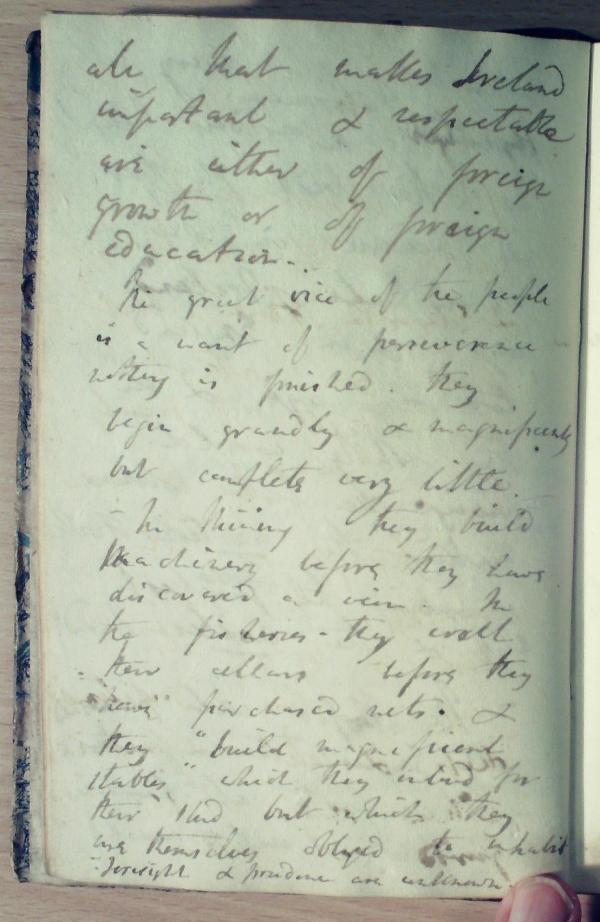 all that makes Ireland
important & respectable
are either of foreign
growth or of foreign
education.
The great vice of the people
is a want of perseverance
nothing is finished. they
begin grandly & magnificently
but complete very little.
- In Mining they build
Machinery before they have
discovered a vein. In
the fisheries - they
their cellars before they
have purchased nets. &
they "build magnificent
stables" which they intend for
their stud but which they
are themselves obliged to inhabit
- Foresight & prudence are unknown.